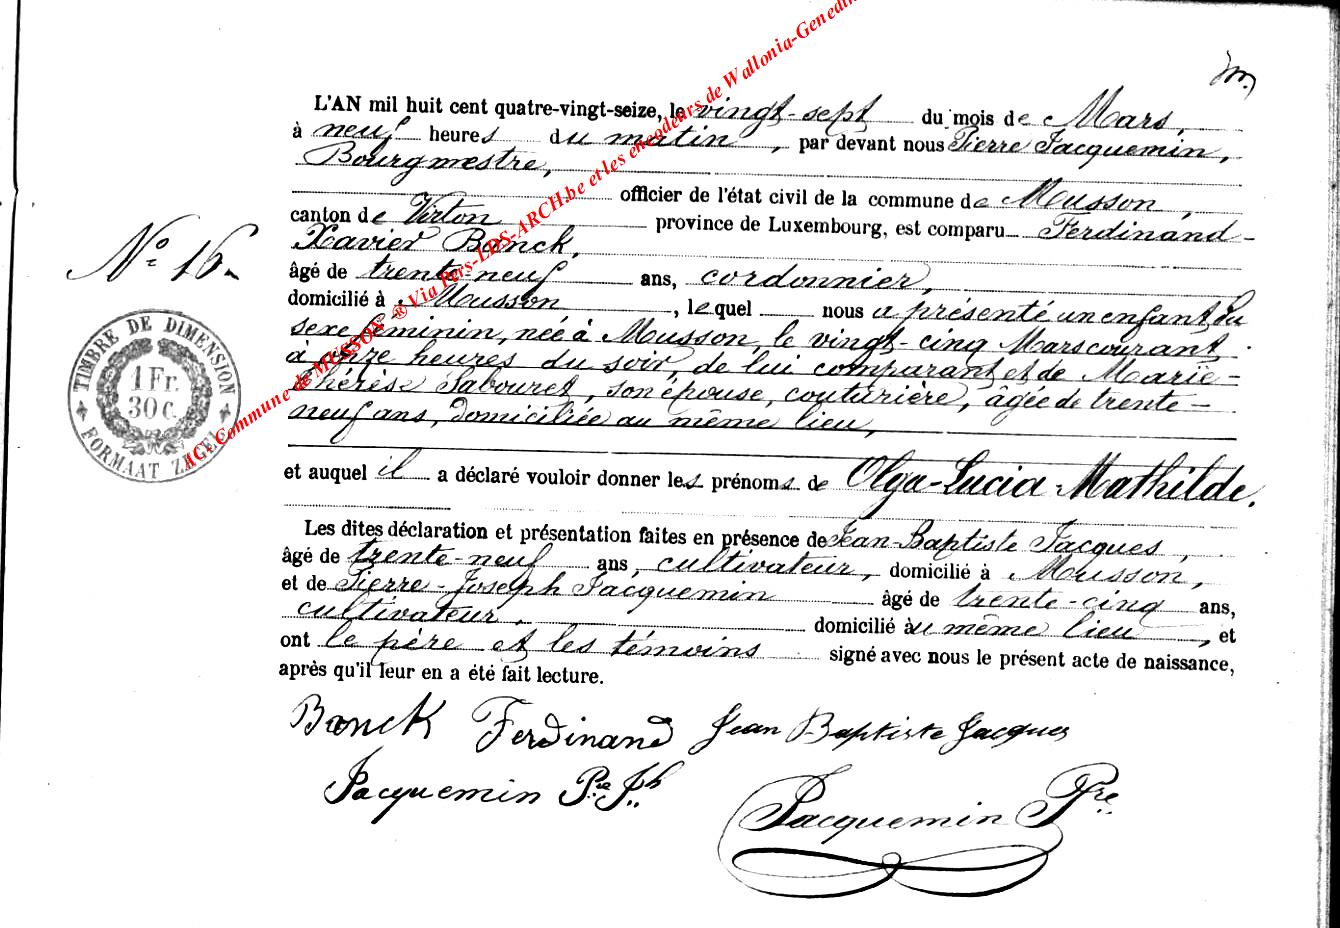 L'AN mil huit cent quatre-vingt-seize, le vingt-sept du mois de Mars,
à neuf heures du matin, par devant nous Pierre Jacquemin,
Bourgmestre,
officier de l'état civil de la commune de Musson,
canton de Virton province de Luxembourg, est comparu Ferdinand-
Xavier Bonck,
N° 16.
âgé de trente-neuf ans, cordonnier,
domicilié à Musson, lequel nous a présenté un enfant du
sexe féminin, née à Musson, le vingt-cinq Mars courant
à onze heures du soir, de lui comparant et de Marie-
Thérèse Sabouret, son épouse, couturière, âgée de trente-
neuf ans, domiciliée au même lieu,
TIMBRE DE DIMENSION
1 Fr.
30 C.
FORMAAT
et auquel il a déclaré vouloir donner les prénoms de Olga-Lucia-Mathilde.
Les dites déclaration et présentation faites en présence de Jean-Baptiste Jacques,
âgé de trente-neuf ans, cultivateur, domicilié à Musson,
et de Pierre-Joseph Jacquemin âgé de trente-cinq ans,
cultivateur, domicilié au même lieu, et
ont le père et les témoins signé avec nous le présent acte de naissance,
après qu'il leur en a été fait lecture.
Bonck Ferdinand Jean Baptiste Jacques
Jacquemin Pre Jh
Jacquemin Pre
Commune de MUSSON ® Via Pers-LDS-ARCH.be et les encodeurs de Wallonia-Genedin